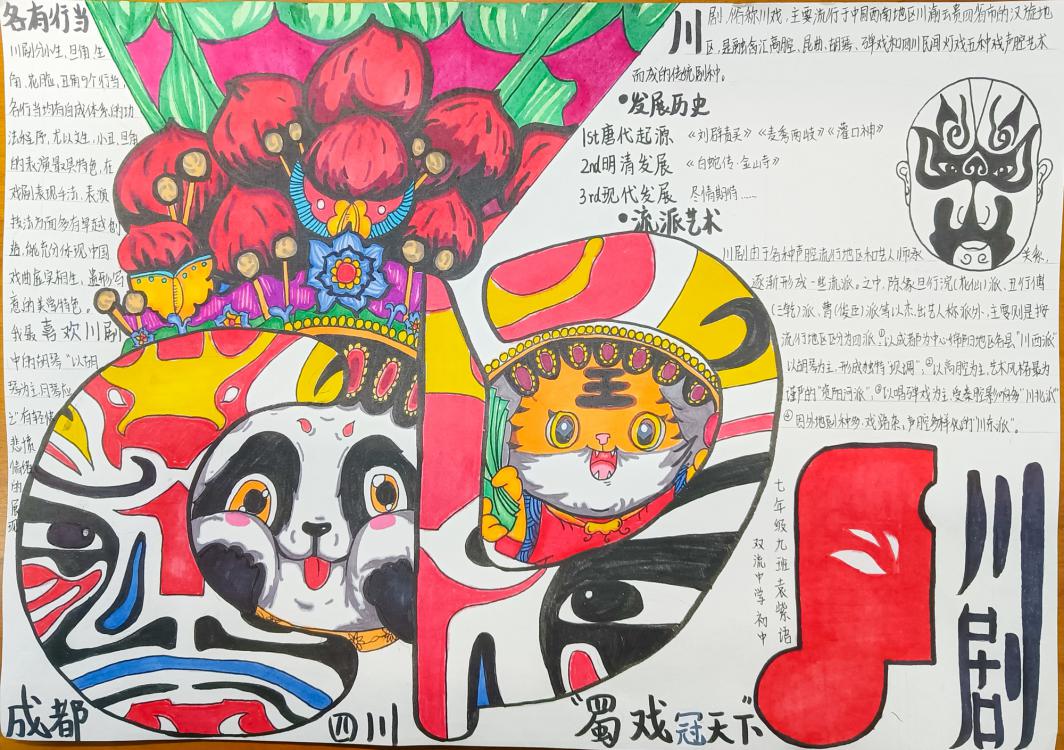 各有行当
川剧分小生、旦角、生
角、花脸、丑角5个行当,
各行当均有自成体系的功
法程序,尤以文生、小丑、旦角
的表演最具特色,在
戏剧表现手法、表演
技法方面多有卓越创
造,能充分体现中国
戏曲虚实相生、遗形写
意的美学特色。
我最喜欢川剧
中的胡琴“以胡
琴为主
有轻快
悲愤
的
展
现
川剧,俗称川戏,主要流行于中国西南地区川渝云贵四省市的汉族地
区,是融合汇高腔、昆曲、胡琴、弹戏和四川民间灯戏五种戏声腔艺术
而成的传统剧种。
•发展历史
1st唐代起源 《刘辟责买》《麦秀两岐》《灌口神》
2nd明清发展 《白蛇传·金山寺》
3rd现代发展 尽情期待……
•流派艺术
川剧由于各种声腔流行地区和艺人师承关系,
逐渐形成一些流派。之中,除象旦行浣(花仙)派、丑行傅
(三乾)派、曹(俊臣)派等以杰出艺人称派外,主要则是按
流行地区区分为四派①以成都为中心
以胡琴为主,形成独特“坝调”,②以高腔为主,艺术风格最为
谨严的“资阳河派”,③以唱弹戏为主,受秦腔影响多“川北派”
④因外地剧种多,戏路杂,声腔多样化的“川东派”。
七年级九班袁紫语
双流中学初中
川剧
成都
四川
“蜀戏冠天下”